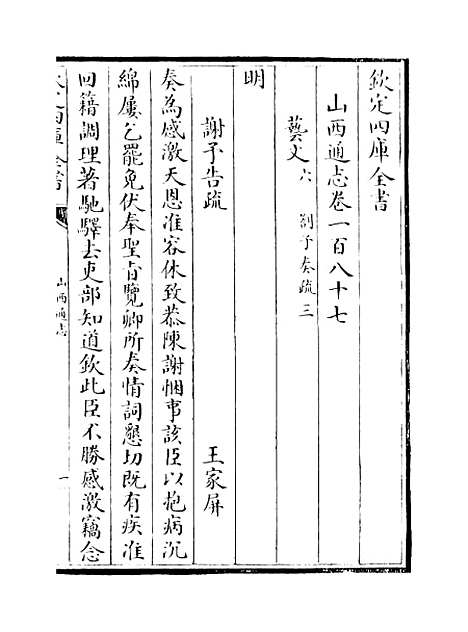 欽定四庫全書
山西通志卷一百八十七
藝文六 劄子奏疏三
明
謝予告疏 王家屏
奏為感激天恩准容休致恭陳謝悃事該臣以抱病沉
綿屢乞罷免伏奉聖旨覽卿所奏情詞懇切既有疾准
回籍調理著馳驛去吏部知道欽此臣不勝感激竊念
欽定四庫全書
山西通志
一